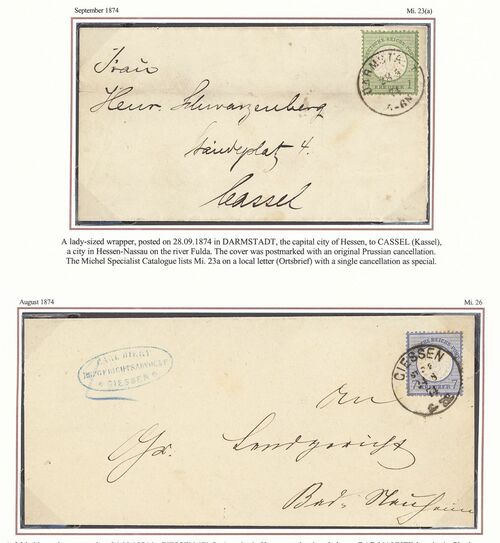 September 1874 Mi. 23(a)
DEUTSCHE REICHS-POST
1
KREUZER 1
DARMSTA
28 9
74
Frau
Henr. Schwarzenberg
Ständeplatz 4.
Cassel
A lady-sized wrapper, posted on 28.09.1874 in DARMSTADT, the capital city of Hessen, to CASSEL (Kassel),
a city in Hessen-Nassau on the river Fulda. The cover was postmarked with an original Prussian cancellation.
The Michel Specialist Catalogue lists Mi. 23a on a local letter (Ortsbrief) with a single cancellation as special.
August 1874 Mi. 26
CARL
HOFGERICHTSADVOKAT
* GIESSEN *
GIESSEN
7 KREUZER 7
An
Gr. Landgericht
Bad-Nauheim